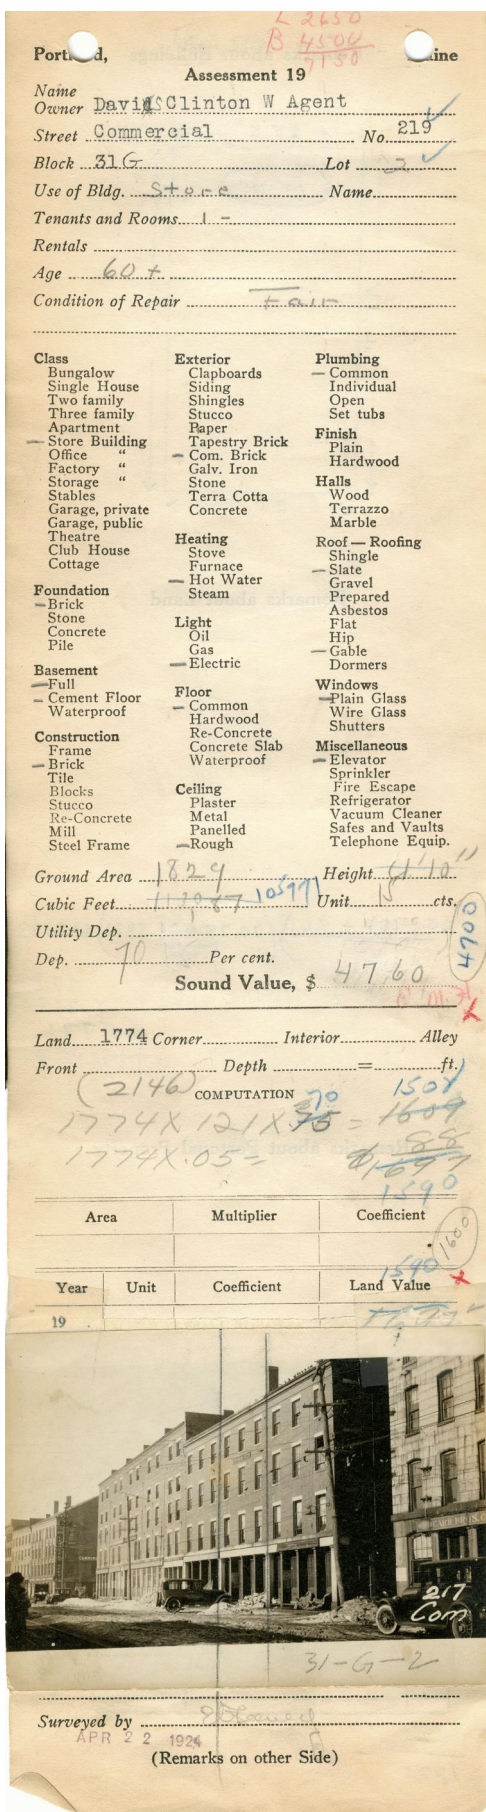 L 2650
B 4500
7150
Portland, Maine
Assessment 19
Name
Owner Davis Clinton W Agent
Street Commercial No. 219
Block 31G Lot 2
Use of Bldg. Store Name
Tenants and Rooms 1 -
Rentals
Age 60+
Condition of Repair Fair
Class
Bungalow
Single House
Two family
Three family
Apartment
Store Building
Office "
Factory "
Storage "
Stables
Garage, private
Garage, public
Theatre
Club House
Cottage
Foundation
Brick
Stone
Concrete
Pile
Basement
Full
Cement Floor
Waterproof
Construction
Frame
Brick
Tile
Blocks
Stucco
Re-Concrete
Mill
Steel Frame
Exterior
Clapboards
Siding
Shingles
Stucco
Paper
Tapestry Brick
Com. Brick
Galv. Iron
Stone
Terra Cotta
Concrete
Heating
Stove
Furnace
Hot Water
Steam
Light
Oil
Gas
Electric
Floor
Common
Hardwood
Re-Concrete
Concrete Slab
Waterproof
Ceiling
Plaster
Metal
Panelled
Rough
Plumbing
Common
Individual
Open
Set tubs
Finish
Plain
Hardwood
Halls
Wood
Terrazzo
Marble
Roof — Roofing
Shingle
Slate
Gravel
Prepared
Asbestos
Flat
Hip
Gable
Dormers
Windows
Plain Glass
Wire Glass
Shutters
Miscellaneous
Elevator
Sprinkler
Fire Escape
Refrigerator
Vacuum Cleaner
Safes and Vaults
Telephone Equip.
Ground Area 1829 Height 41'10"
Cubic Feet Unit 15 cts.
Utility Dep.
Dep. 70 Per cent.
4700
Sound Value, $ 4760
Land 1774 Corner Interior Alley
Front Depth = ft.
(2146) COMPUTATION 70 1501
1774 X 121 X 75 = 1609
1774 X .05 = 88
1697
1590
Area Multiplier Coefficient
1600
1590
Year Unit Coefficient Land Value
19
217
Com
31-G-2
Surveyed by
APR 22 1924
(Remarks on other Side)